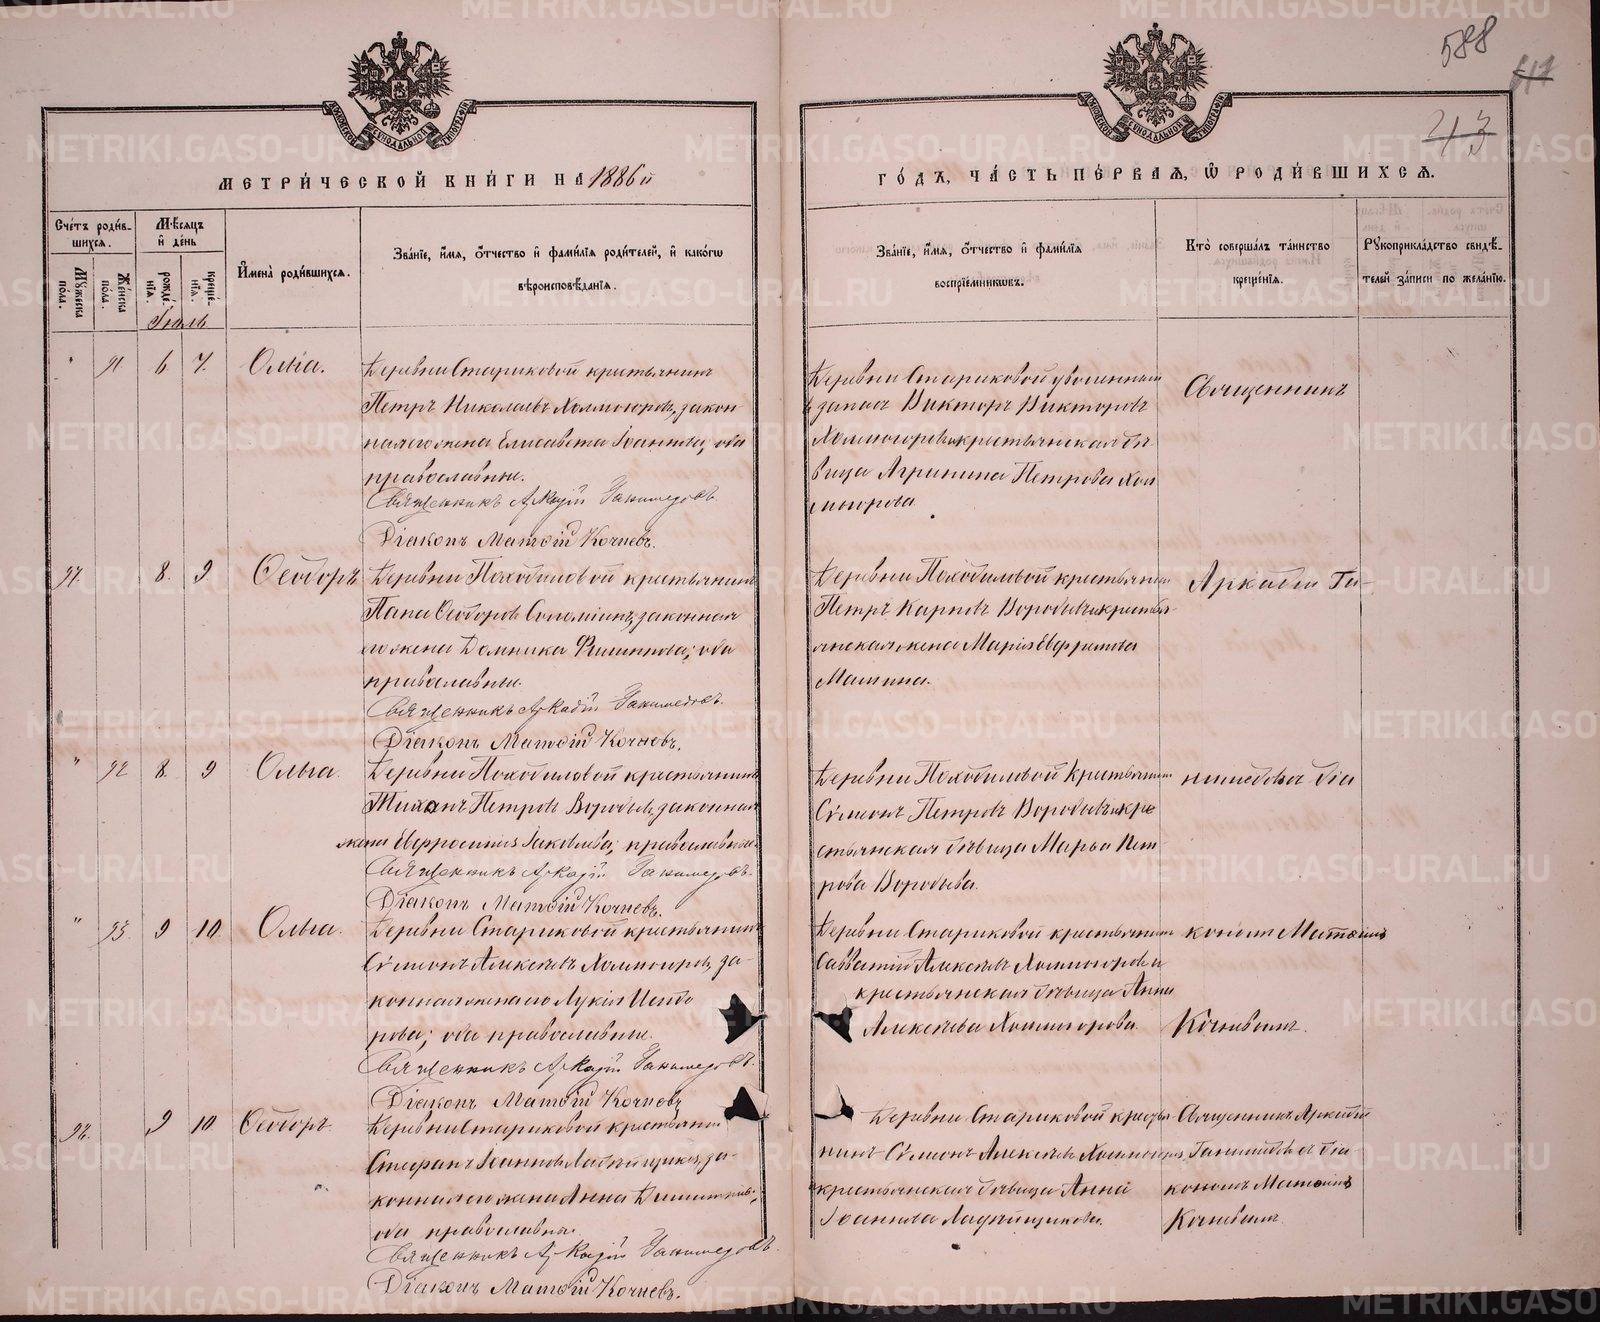 588
43
МЕТРИ́ЧЕСКОЙ КНИ́ГИ НА 1886й
ГО́ДЪ, ЧА́СТЬ ПЕ́РВАѦ, Ѡ҆ РОДИ́ВШИХСѦ.
Сче́тъ роди́в-
шихсѧ.
Мѣ́сѧцъ
и҆ де́нь
Мꙋ́жеска
пола.
Же́нска
пола.
рожде́-
нїѧ.
креще́-
нїѧ.
И҆мена̀ роди́вшихсѧ.
Зва́нїе, и҆́мѧ, ѻ҆́тчество и҆ фами́лїѧ роди́телей, и҆ како́гѡ
вѣроисповѣ́данїѧ.
Зва́нїе, и҆́мѧ, ѻ҆́тчество и҆ фами́лїѧ
воспрїе́мникѡвъ.
Кто̀ соверша́лъ та́инство
креще́нїѧ.
Рꙋкоприкла́дство свидѣ́-
телей за́писи по жела́нїю.
Іюль
" 91. 6. 7. Ольга.
Деревни Стариковой крестьянинъ
Петръ Николаевъ Холмогоровъ, закон
ная его жена Елисавета Іоаннова; оба
православные.
Священникъ Аркадій Ганимедовъ.
Діаконъ Матѳій Кочневъ.
Деревни Стариковой уволенный
въ запас Викторъ Викторовъ
Холмогоровъ и крестьянская дѣ-
вица Агрипина Петрова Хол
могорова
Священникъ
97. 8. 9 Ѳеодоръ.
Деревни Походиловой крестьянинъ
Ѳеодоровъ законная
его жена Домника Филиппова; оба
православные.
Священникъ Аркадій Ганимедовъ.
Діаконъ Матѳій Кочневъ.
Деревни Походиловой крестьянинъ
Петръ Карповъ Воробьевъ и кресть-
янская жена Марія Евфимова
Мамина.
Аркадій Га-
" 92. 8. 9 Ольга.
Деревни Походиловой крестьянинъ
Тихонъ Петровъ Воробьевъ, законная
жена Евфросинія Іаковлева; православные.
Священникъ Аркадій Ганимедовъ.
Діаконъ Матѳій Кочневъ.
Деревни Походиловой крестьянинъ
Сѵмеонъ Петровъ Воробьевъ и кре
стьянская дѣвица Марья Пет-
рова Воробьева.
нимедовъ съ діа
" 93. 9 10 Ольга.
Деревни Стариковой крестьянинъ
Сѵмеонъ Алексѣевъ Холмогоровъ, за-
конная жена его Лукія Исидо
рова; оба православные.
Священникъ Аркадій Ганимедовъ.
Діаконъ Матѳій Кочневъ.
Деревни Стариковой крестьянинъ
Савватій Алексѣевъ Холмогоровъ и
крестьянская дѣвица Анна
Алексѣева Холмогорова.
кономъ Матѳіемъ
Кочневымъ.
98. 9 10 Ѳеодоръ.
Деревни Стариковой крестьянинъ
Стефанъ Іоанновъ Ладейщиковъ, за-
конная его жена Анна Димитріева;
оба православные.
Священникъ Аркадій Ганимедовъ.
Діаконъ Матѳій Кочневъ.
Деревни Стариковой крестья
нинъ Сѵмеонъ Алексѣевъ Холмогоровъ,
и крестьянская дѣвица Анна
Іоаннова Ладейщикова.
Священникъ Аркадій
Ганимедовъ съ діа-
кономъ Матѳіемъ
Кочневымъ.
METRIKI.GASO-URAL.RU